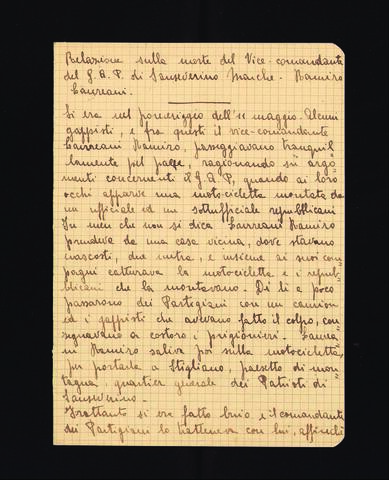 Relazione sulla morte del Vice-comandante
del G.A.P. di Sanseverino Marche - Ramiro
Taureani.
Si era nel pomeriggio dell'11 maggio. Alcuni
gappisti, e fra questi il vice-comandante
Ramiro, passeggiavano tranquil
lamente pel paese, ragionando su argo=
menti concernenti il G.A.P., quando ai loro
occhi apparve una motocicletta montata da
un ufficiale ed un sottufficiale repubblicani
In men che non si dica Ramiro
prendeva da una casa vicina, dove stavano
nascosti, due mitra, e insieme ai suoi com
pagni catturava la motocicletta e i repub=
blicani che la montavano. Di lì a poco
passarono dei Partigiani con un camion
ed i gappisti che avevano fatto il colpo, con
segnavano a costoro i prigionieri.
Ramiro saliva poi sulla motocicletta,
per portarla a Stigliano, paesetto di mon=
tagna, quartier generale dei Patrioti di
Sanseverino.
Frattanto si era fatto buio e il comandante
dei Partigiani lo tratteneva con lui, affinché